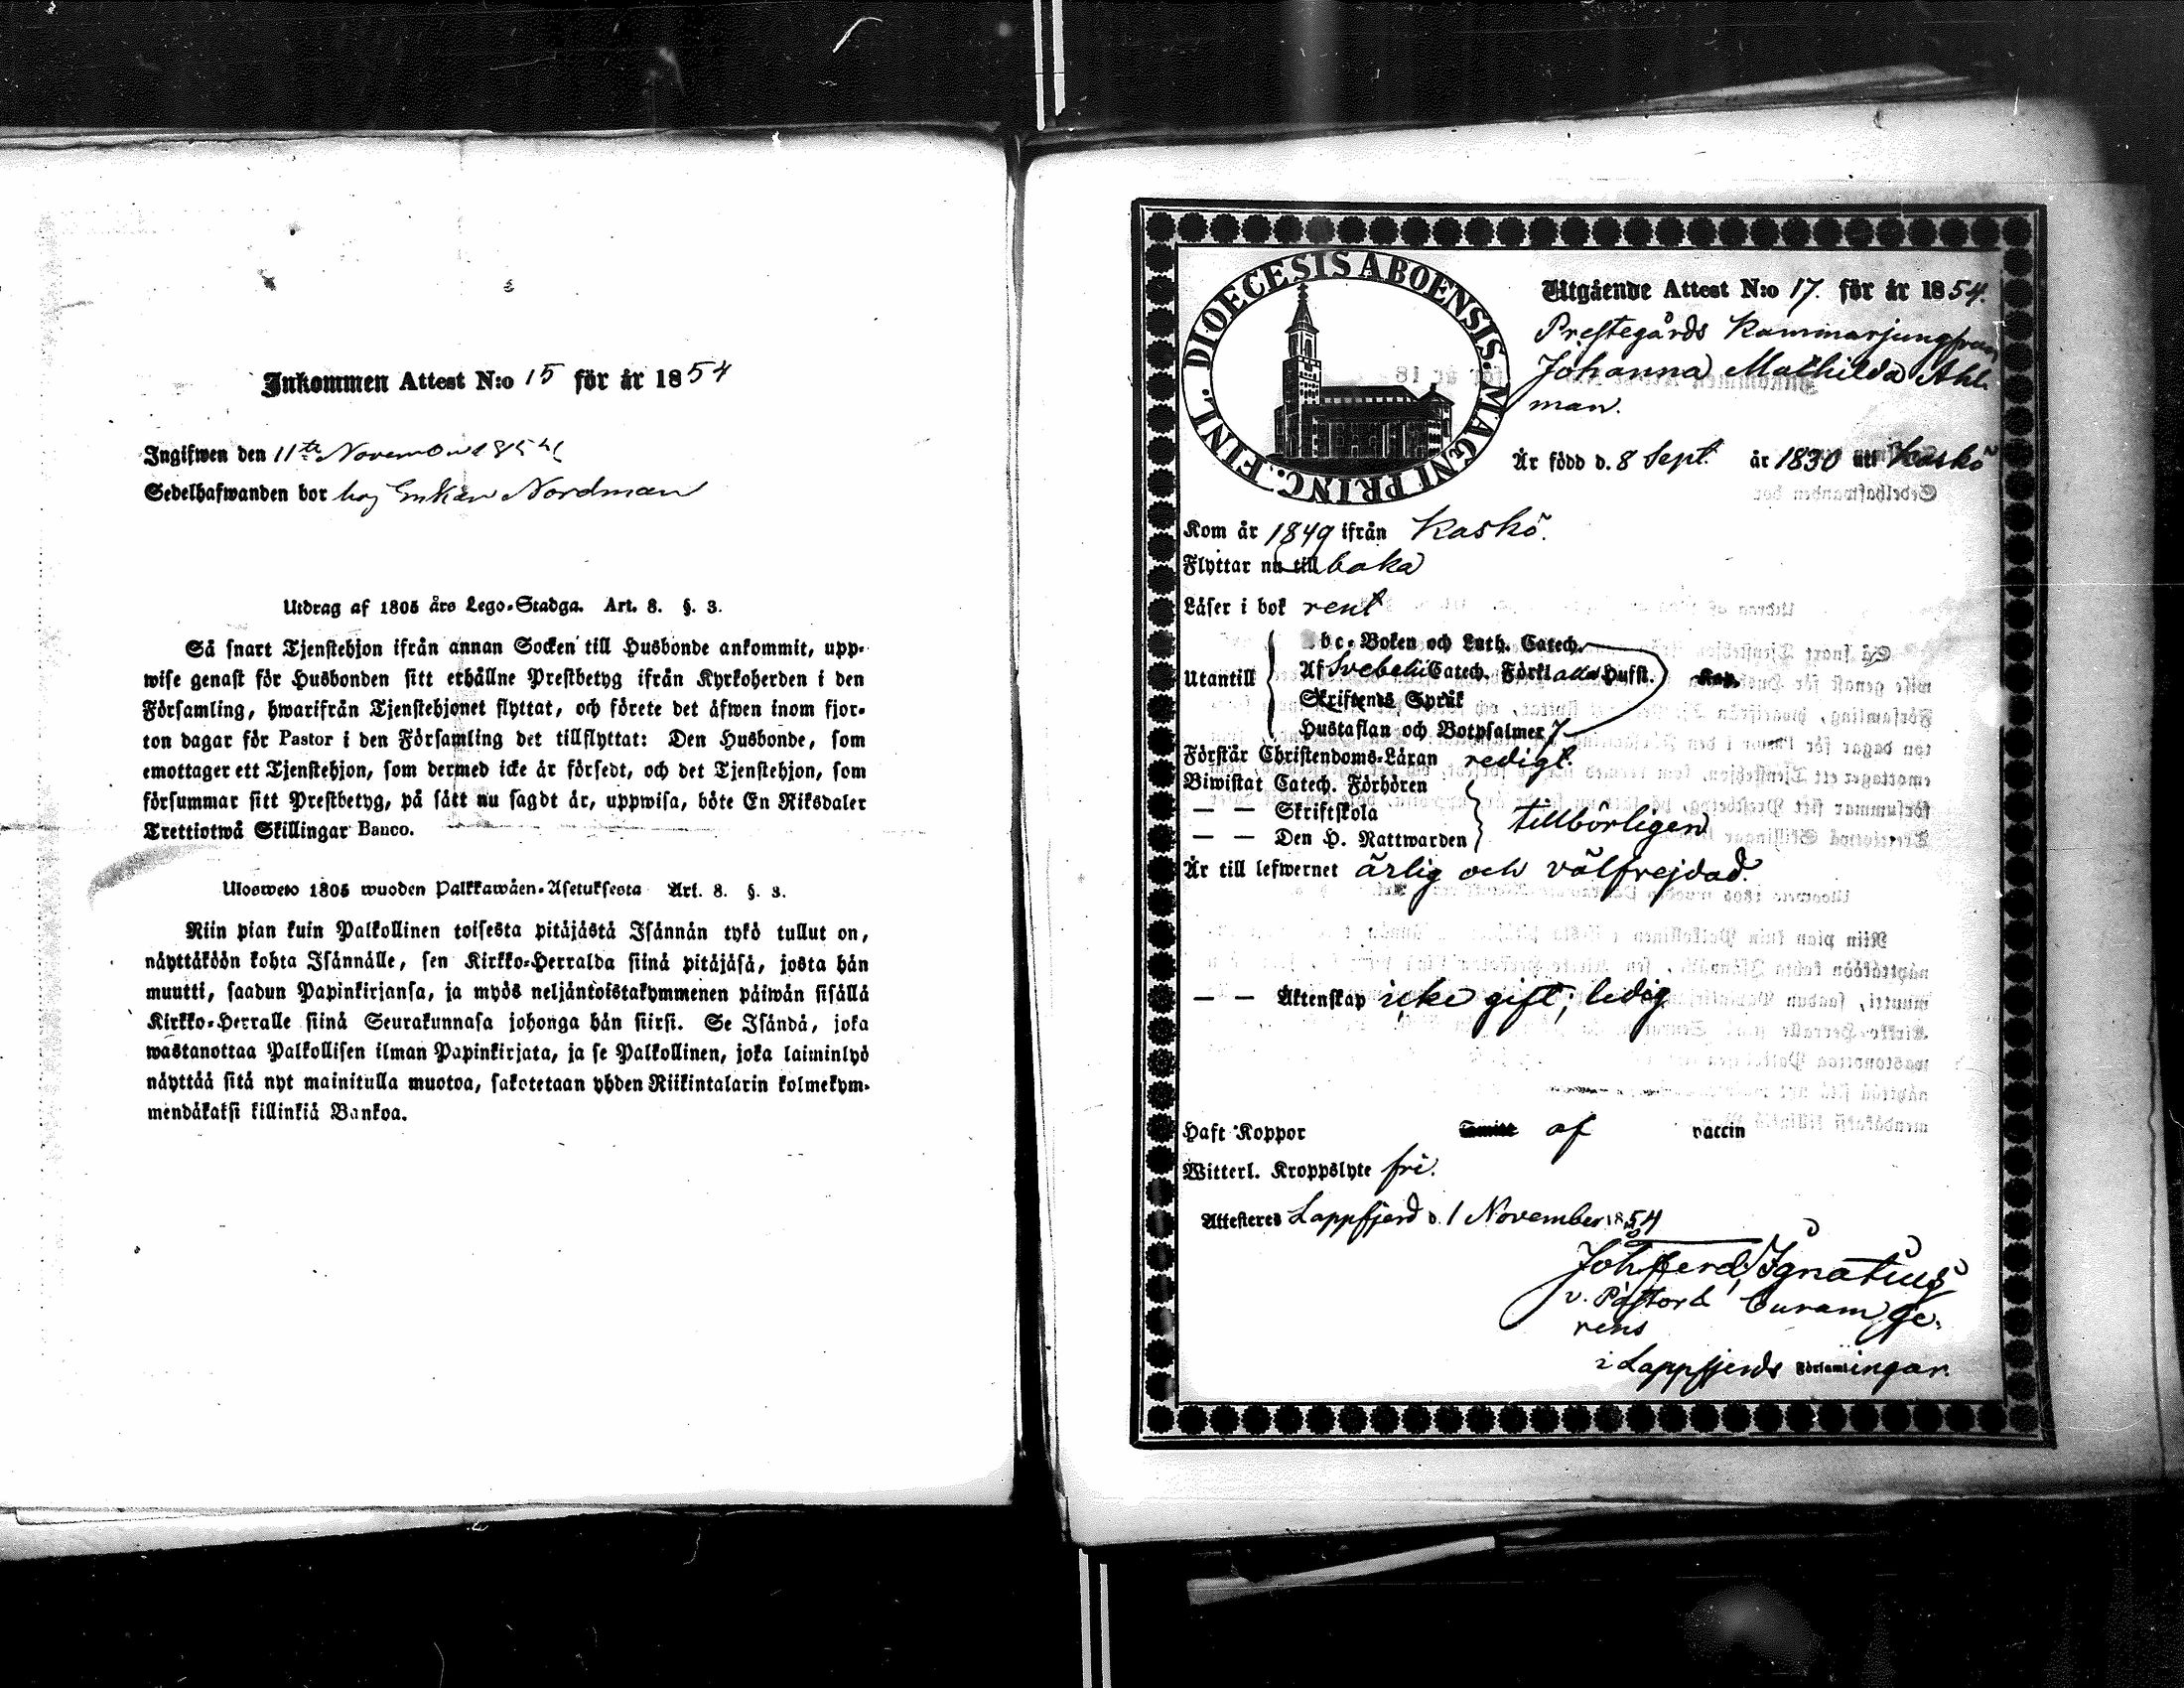 Inkommen Attest N:o 15 för år 1854
Ingifwen den 11te November 1854
Sedelhafwanden bor hos Enkan Nordman
Utdrag af 1805 års Lego-Stadga. Art. 8. §. 3.
Så snart Tjenstehjon ifrån annan Socken till Husbonde ankommit, upp-
wise genast för Husbonden sitt erhållne Prestbetyg ifrån Kyrkoherden i den
Församling, hwarifrån Tjenstehjonet flyttat, och förete det äfwen inom fjor-
ton dagar för Pastor i den Församling det tillflyttat: Den Husbonde, som
emottager ett Tjenstehjon, som dermed icke är försedt, och det Tjenstehjon, som
försummar sitt Prestbetyg, på sätt nu sagdt är, uppwisa, böte En Riksdaler
Trettiotwå Skillingar Banco.
Ulosweto 1805 wuoden Palkkawäen-Asetuksesta Art. 8. §. 3.
Niin pian kuin Palkollinen toisesta pitäjästä Isännän tykö tullut on,
näyttäköön kohta Isännälle, sen Kirkko-Herralda siinä pitäjäsä, josta hän
muutti, saadun Papinkirjansa, ja myös neljäntoistakymmenen päiwän sisällä
Kirkko-Herralle siinä Seurakunnasa johonga hän siirsi. Se Isändä, joka
wastanottaa Palkollisen ilman Papinkirjata, ja se Palkollinen, joka laiminlyö
näyttää sitä nyt mainitulla muotoa, sakotetaan yhden Riikintalarin kolmekym-
mendäkaksi killinkiä Bankoa.
DIOECESIS ABOENSIS. MAGNI PRINC. FINL.
Utgående Attest N:o 17. för år 1854.
Prestegårds Kammarjungfrun
Johanna Mathilda Ahl-
man.
Är född d. 8 Sept. år 1830 uti Kaskö
Kom år 1849 ifrån Kaskö.
Flyttar nu tillbaka
Läser i bok rent
Abc-Boken och Luth. Catech.
Utantill Af Svebelii Catech. Förkl alla Hufst. Kap.
Skriftenes Språk
Hustaflan och Botpsalmer 7
Förstår Christendoms-Läran redigt.
Biwistat Catech. Förhören
— — Skriftskola tillbörligen
— — Den H. Nattwarden
Är till lefwernet ärlig och välfrejdad.
— — Äktenskap icke gift, ledig
Haft Koppor af vaccin
Witterl. Kroppslyte fri.
Attesteres Lappfjerd d. 1 November 1854
Joh. Ferd. Ignatius
v. Pastor Curam ge-
rens
i Lappfjerds Församlingar.